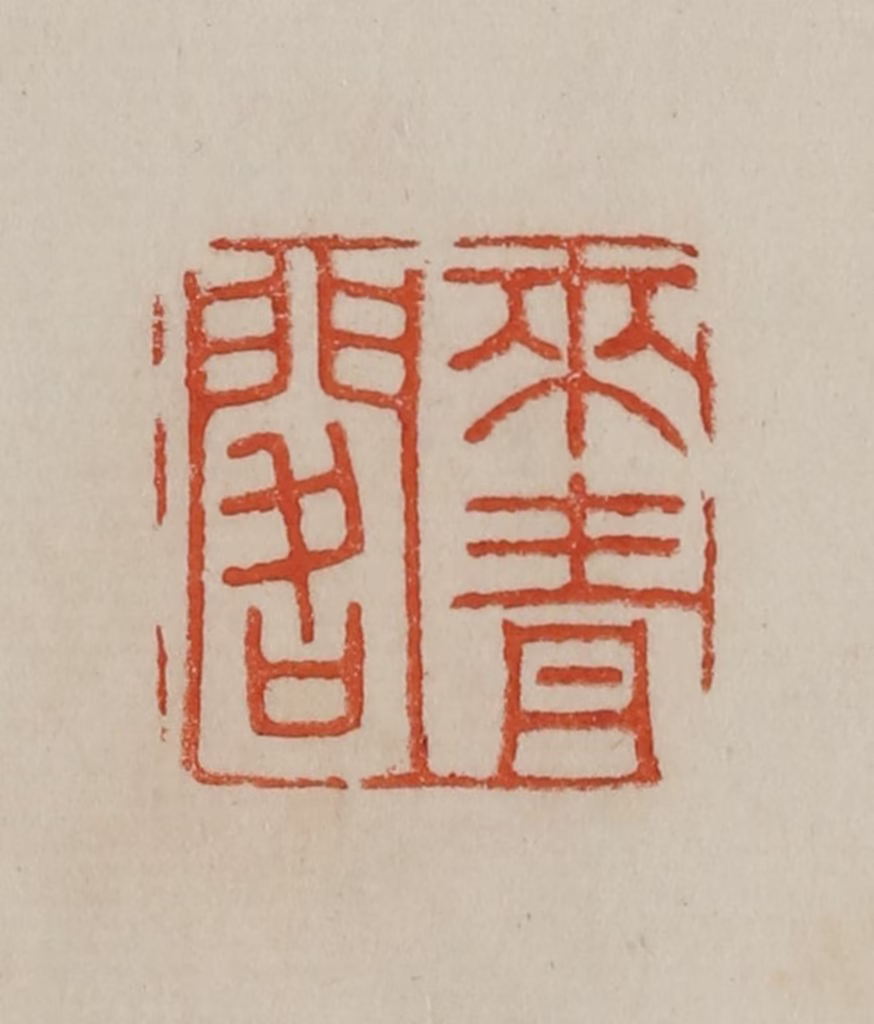 來青
閣